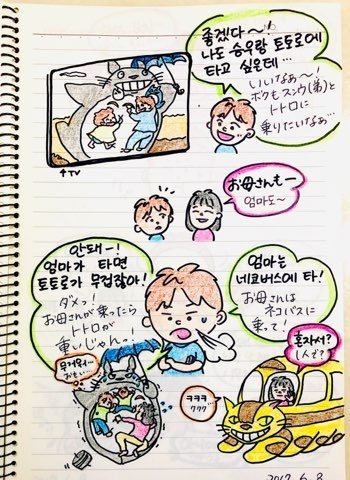 좋겠다~!
나도 승우랑 토토로에
타고 싶은데…
いいなぁ~!
ボクもスンウ(弟)と
トトロに
乗りたいなぁ…
↑TV
お母さんも〜
엄마도~
안돼-!
엄마가 타면
토토로가 무겁잖아!
ダメっ!
お母さんが乗ったら
トトロが
重いじゃんー!
엄마는
네코버스에 타!
お母さんは
ネコバスに
乗って!
무거워…
おもい…
ㅋㅋㅋ
ククク
혼자서?
1人で?